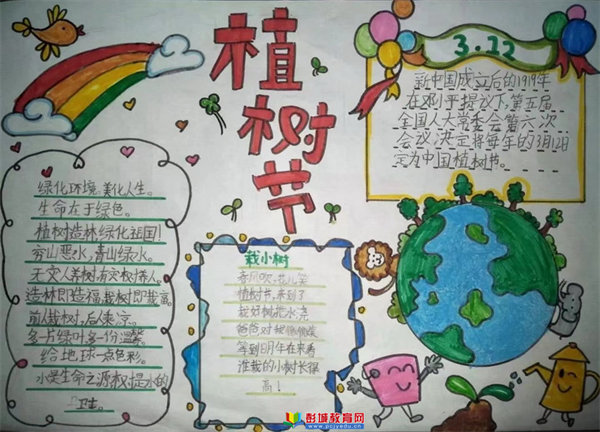 植树节
3.12
新中国成立后的1919年
在邓小平提议下,第五届
全国人大常委会第六次
会议决定将每年的3月12日
定为中国植树节。
绿化环境,美化人生。
生命在于绿色。
植树造林,绿化祖国!
穷山恶水,青山绿水。
无文人养树,有农树养人。
造林即造福,栽树即栽富。
前人栽树,后人乘凉。
多一片绿叶,多一份温馨。
给地球一点色彩。
水是生命之源,树是水的
卫生。
栽小树
春风吹,花儿笑
植树节,来到了
我好树把水浇
爸爸对我
等到明年在来看
谁栽的小树长得
高!
彭城教育网
www.pcjyedu.cn